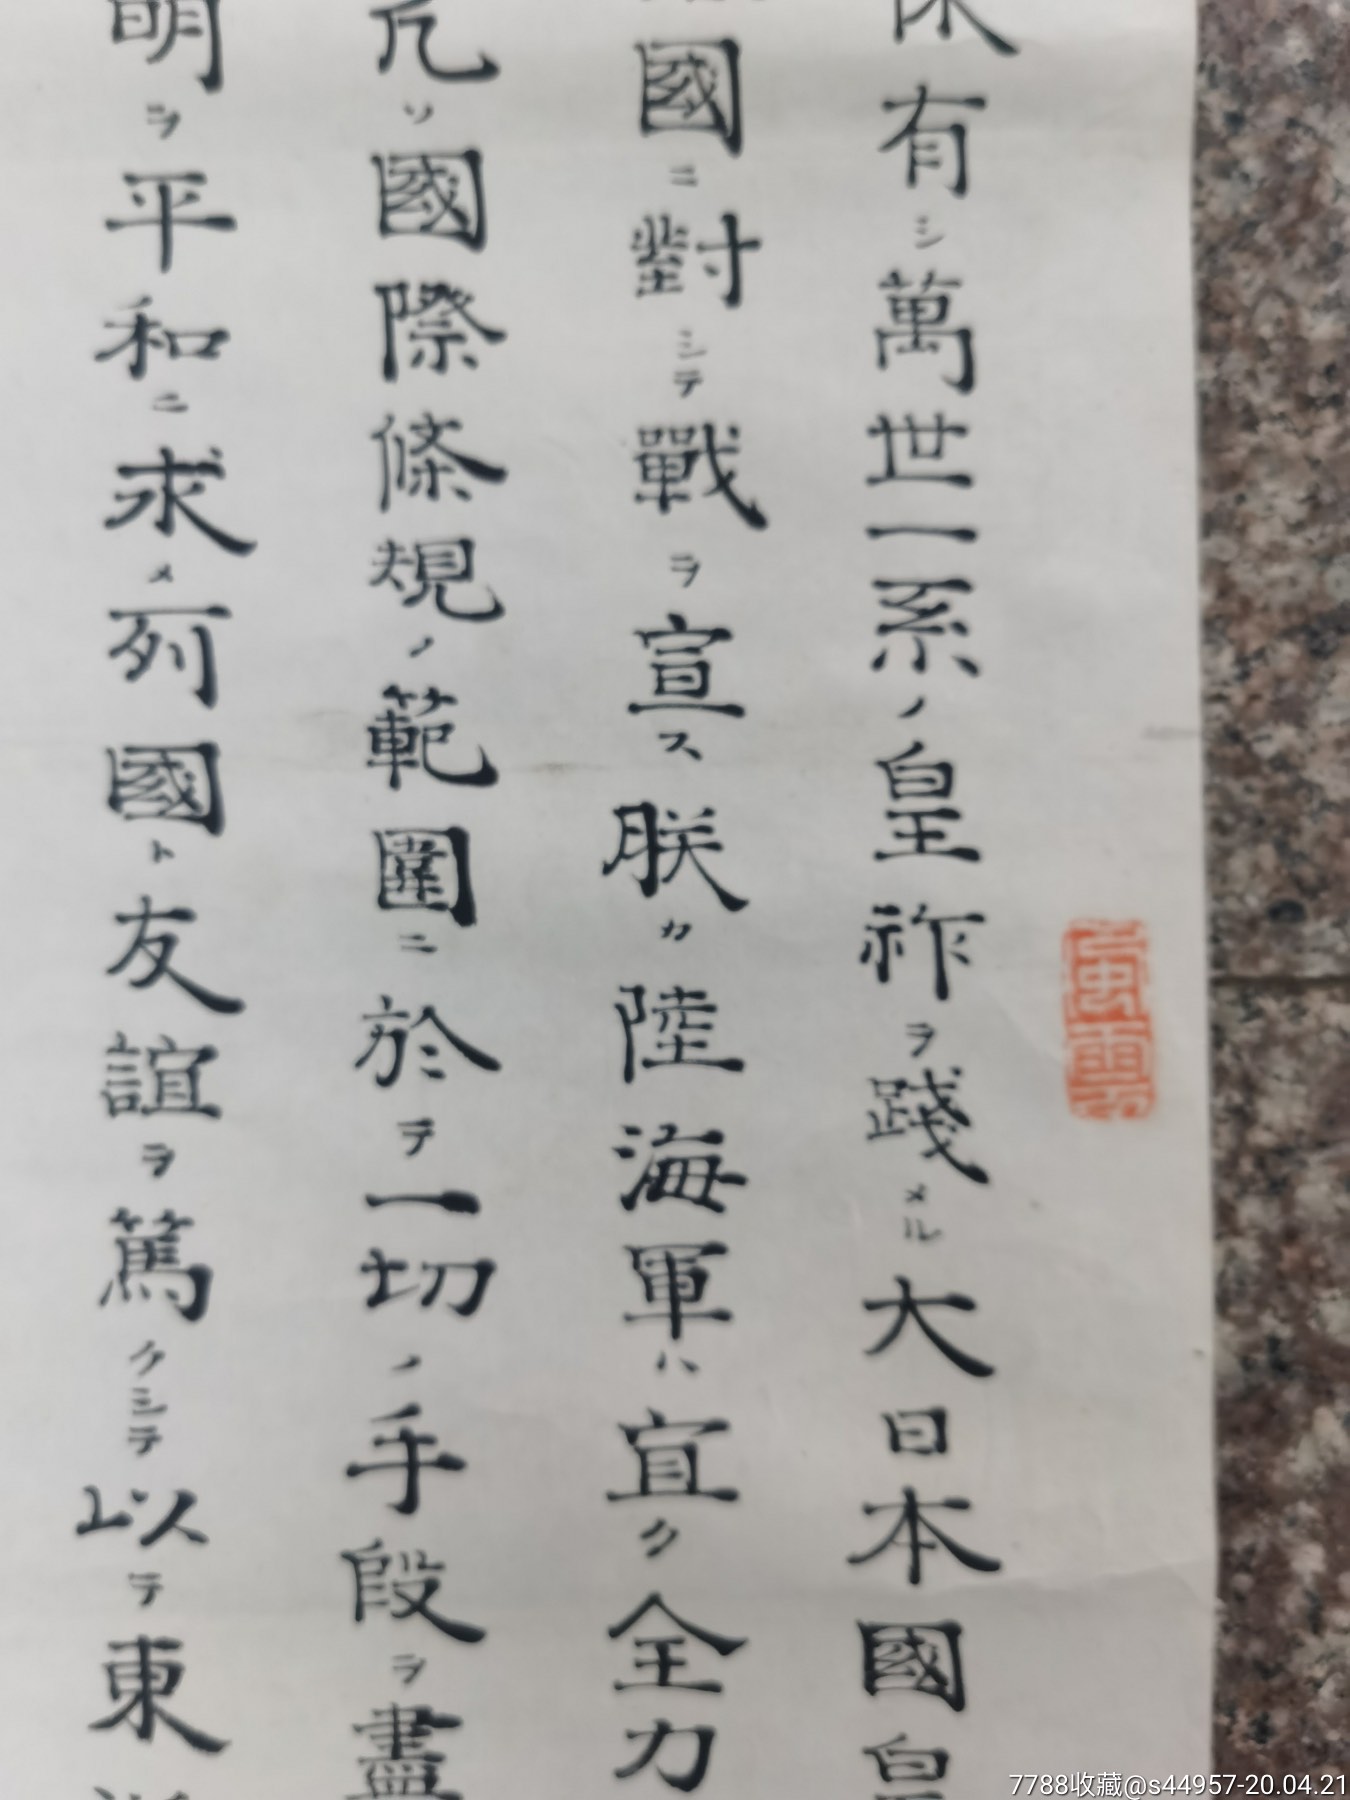 休有シ萬世一系ノ皇祚ヲ踐メル大日本國皇
國ニ對シテ戰ヲ宣ス朕カ陸海軍ハ宜ク全力
凡ソ國際條規ノ範圍ニ於テ一切ノ手段ヲ盡
明ヲ平和ニ求メ列國ト友誼ヲ篤クシテ以テ東
7788收藏@s44957-20.04.21